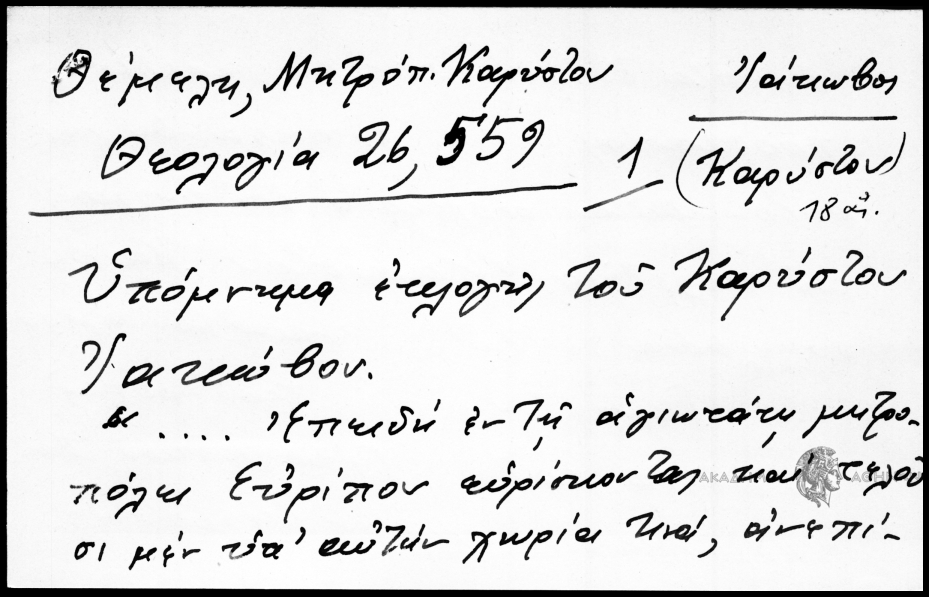 Θέμελη, Μητρόπ. Καρύστου
Ἰάκωβος
Θεολογία 26, 559
1
(Καρύστου)
18 αἰ.
Ὑπόμνημα ἐκλογῆς τοῦ Καρύστου
Ἰακώβου.
« .... Ἐπειδή ἐν τῇ ἁγιωτάτῃ μητρο-
πόλει Εὐρίπου εὑρίσκονται καί τελοῦ
σι μέν ὑπ' αὐτήν χωρία τινά, ἀνεπί-